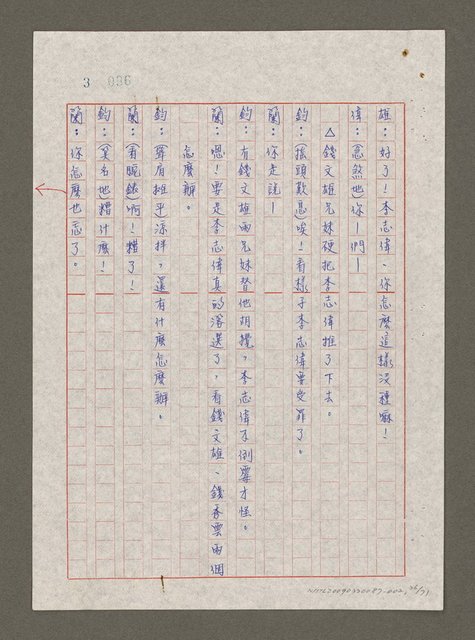 3 096
雄：好了！李志偉、你怎麼這樣沒種嘛！
偉：（忽然地）你—們—
△錢文雄兄妹硬把李志偉推了下去。
鈞：（搖頭歎息）唉！看樣子李志偉要受罪了。
蘭：你是說—
鈞：有錢文雄兩兄妹替他胡攪，李志偉不倒霉才怪。
蘭：嗯！要是李志偉真的落選了，看錢文雄、錢秀雲兩個
怎麼辦。
鈞：（聳肩推手）涼拌，還有什麼怎麼辦。
蘭：（看腕錶）啊！糟了！
鈞：（莫名地）糟什麼！
蘭：你怎麼也忘了。